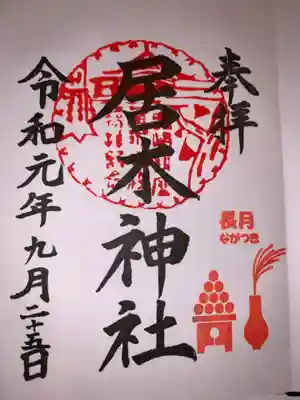 奉拝
長月
ながつき
居木神社
令和元年九月二十五日